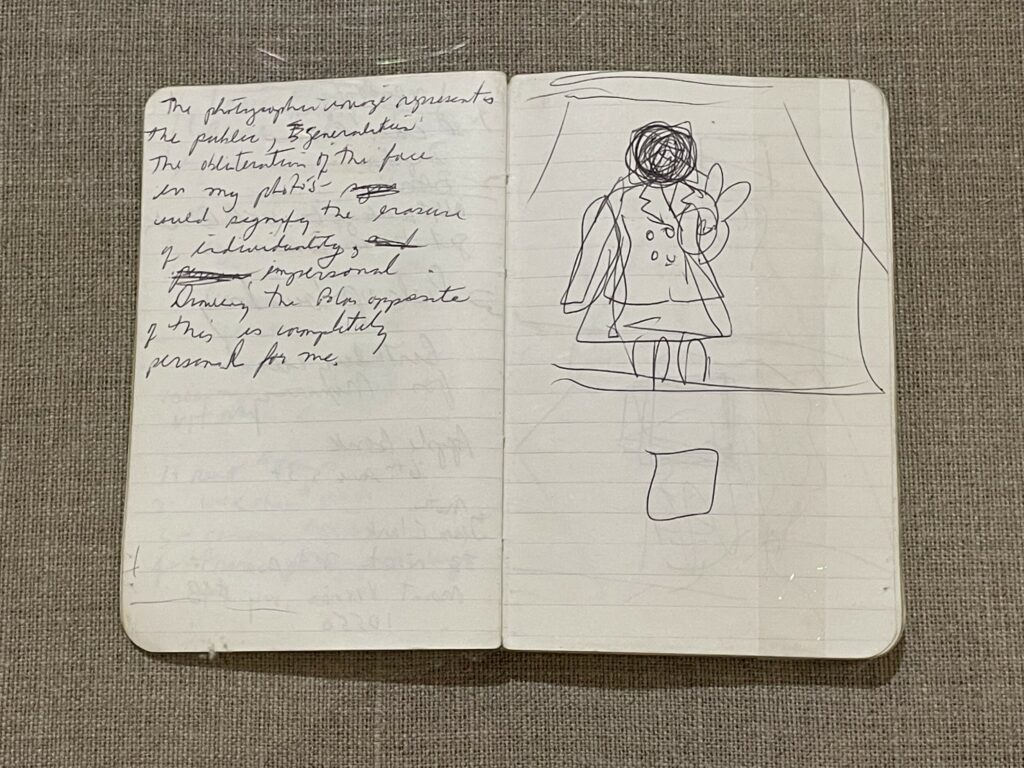 The photographic image represents
the public, generalities
The obliteration of the face
in my photos -
would signify the erasure
of individuality,
impersonal.
Drawing, the Polar opposite
of this is completely
personal for me.